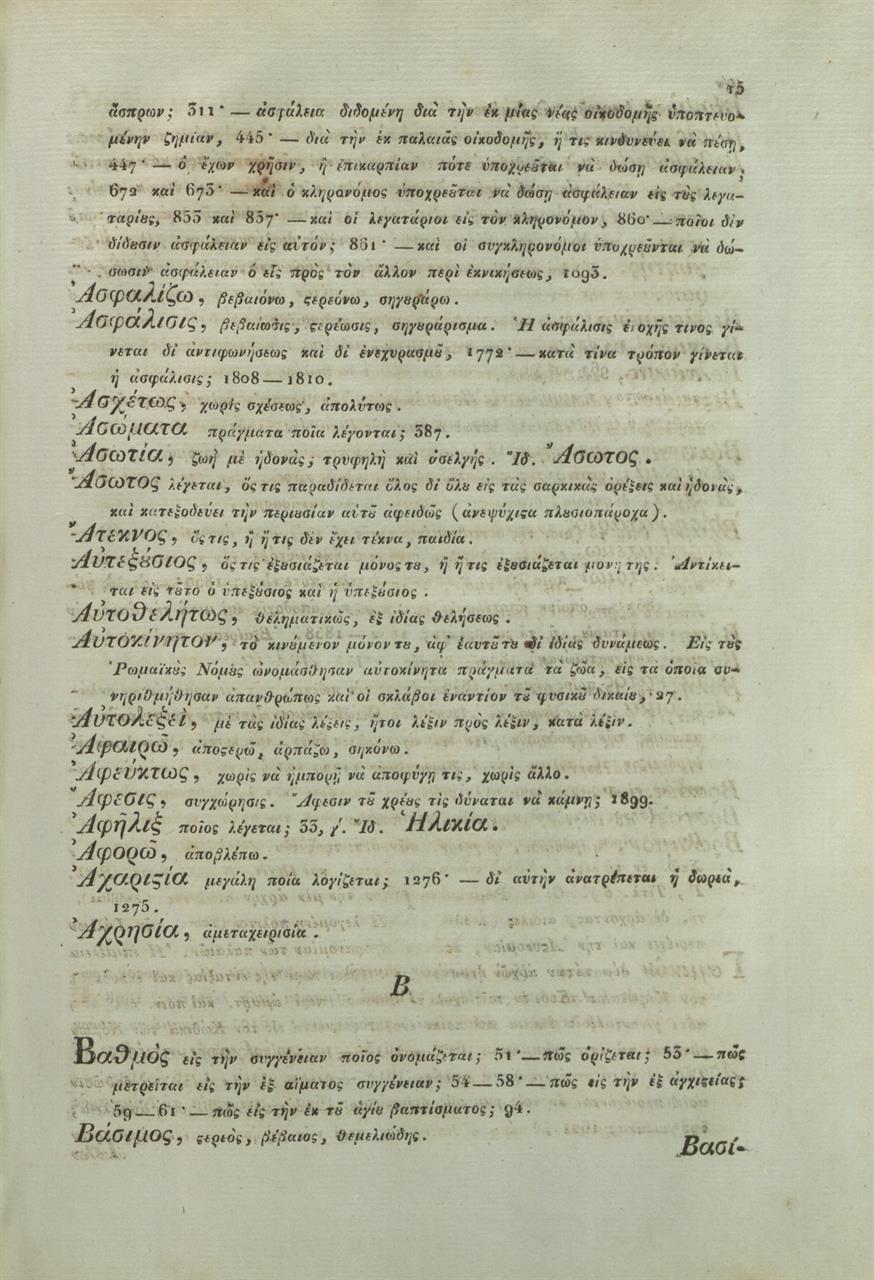 15
ἄσπρων; 311· — ἀσφάλεια διδομένη διὰ τὴν ἐκ μίας νέας οἰκοδομῆς ὑποπτευο-
μένην ζημίαν, 445· — διὰ τὴν ἐκ παλαιᾶς οἰκοδομῆς, ἥ τις κινδυνεύει νὰ πέσῃ,
447· — ὁ ἔχων χρῆσιν, ἢ ἐπικαρπίαν πότε ὑποχρεῦται νὰ δώσῃ ἀσφάλειαν;
672 καὶ 673· — καὶ ὁ κληρονόμος ὑποχρεῦται νὰ δώσῃ ἀσφάλειαν εἰς τȣ̀ς λεγα-
ταρίȣς, 853 καὶ 857· — καὶ οἱ λεγατάριοι εἰς τὸν κληρονόμον, 860· — ποῖοι δὲν
δίδȣσιν ἀσφάλειαν εἰς αὐτόν; 861· — καὶ οἱ συγκληρονόμοι ὑποχρεῦνται νὰ δώ-
σωσιν ἀσφάλειαν ὁ εἷς πρὸς τὸν ἄλλον περὶ ἐκνικήσεως, 1093.
Ἀσφαλίζω, βεβαιόνω, ϛερεόνω, σηγȣράρω.
Ἀσφάλισις, βεβαίωσις, ϛερέωσις, σηγȣράρισμα. Ἡ ἀσφάλισις ἐνοχῆς τινος γί-
νεται δι' ἀντιφωνήσεως καὶ δι' ἐνεχυρασμȣ͂, 1772· — κατὰ τίνα τρόπον γίνεται
ἡ ἀσφάλισις; 1808 — 1810.
Ἀσχέτως, χωρὶς σχέσεως, ἀπολύτως.
Ἀσώματα πράγματα ποῖα λέγονται; 387.
Ἀσωτία, ζωὴ μὲ ἡδονὰς, τρυφηλὴ καὶ ἀσελγής. Ἴδ. Ἄσωτος.
Ἄσωτος λέγεται, ὅς τις παραδίδεται ὅλος δι' ὅλȣ εἰς τὰς σαρκικὰς ὀρέξεις καὶ ἡδονὰς,
καὶ κατεξοδεύει τὴν περιȣσίαν αὑτȣ͂ ἀφειδῶς (ἀνεψύχιϛα πλȣσιοπάροχα).
Ἄτεκνος, ὅς τις, ἢ ἥ τις δὲν ἔχει τέκνα, παιδία.
Αὐτεξȣ́σιος, ὅς τις ἐξȣσιάζεται μόνος τȣ, ἢ ἥ τις ἐξȣσιάζεται μονή της. Ἀντίκει-
ται εἰς τȣ͂το ὁ ὑπεξȣ́σιος καὶ ἡ ὑπεξȣ́σιος.
Αὐτοθελήτως, θεληματικῶς, ἐξ ἰδίας θελήσεως.
Αὐτοκίνητον, τὸ κινȣ́μενον μόνον τȣ, ἀφ' ἑαυτȣ͂ τȣ δι' ἰδίας δυνάμεως. Εἰς τȣ̀ς
Ῥωμαϊκȣ̀ς Νόμȣς ὠνομάσθησαν αὐτοκίνητα πράγματα τὰ ζῶα, εἰς τὰ ὁποῖα συ-
νηριθμήθησαν ἀπανθρώπως καὶ οἱ σκλάβοι ἐναντίον τȣ͂ φυσικȣ͂ δικαίȣ, 27.
Αὐτολεξεὶ, μὲ τὰς ἰδίας λέξεις, ἤτοι λέξιν πρὸς λέξιν, κατὰ λέξιν.
Ἀφαιρῶ, ἀποϛερῶ, ἁρπάζω, σηκόνω.
Ἀφεύκτως, χωρὶς νὰ ἠμπορῇ νὰ ἀποφύγῃ τις, χωρὶς ἄλλο.
Ἄφεσις, συγχώρησις. Ἄφεσιν τȣ͂ χρέȣς τὶς δύναται νὰ κάμνῃ; 1899.
Ἀφῆλιξ ποῖος λέγεται; 33, γ'. Ἴδ. Ἡλικία.
Ἀφορῶ, ἀποβλέπω.
Ἀχαριϛία μεγάλη ποία λογίζεται; 1276· — δι' αὐτὴν ἀνατρέπεται ἡ δωρεὰ,
1275.
Ἀχρησία, ἀμεταχειρισία.
Β
Βαθμὸς εἰς τὴν συγγένειαν ποῖος ὀνομάζεται; 51· — πῶς ὁρίζεται; 53· — πῶς
μετρεῖται εἰς τὴν ἐξ αἵματος συγγένειαν; 54 — 58· — πῶς εἰς τὴν ἐξ ἀγχιϛείας;
59 — 61· — πῶς εἰς τὴν ἐκ τȣ͂ ἁγίȣ βαπτίσματος; 94.
Βάσιμος, ϛερεὸς, βέβαιος, θεμελιώδης.
Βασί-